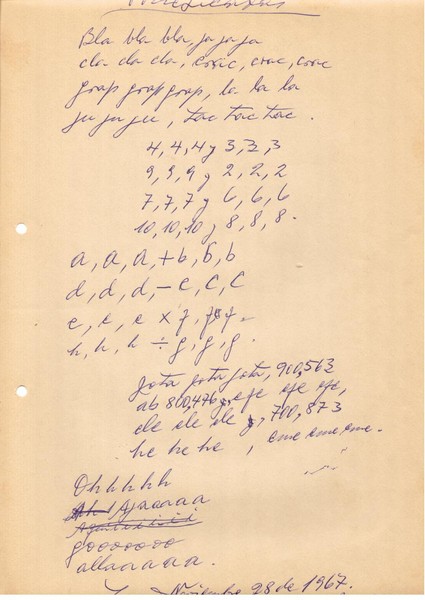 Bla bla bla, ja ja ja
cla cla cla, croic, crac, crac
grap grap grap, la la la
ju ju ju, tac tac tac.
4, 4, 4 y 3, 3, 3
9, 9, 9 y 2, 2, 2
7, 7, 7 y 6, 6, 6
10, 10, 10 y 8, 8, 8.
a, a, a, + b, b, b
d, d, d, - c, c, c
e, e, e x f, f, f.
h, h, h ÷ g, g, g.
jota jota jota, 900,563
ab 800,476 y, efe efe efe,
ele ele ele y, 700,873
he he he, eme eme eme.
Ohhhhh
Ajaaaaa
gooooooo
allaaaaaa.
Noviembre 28 de 1967.